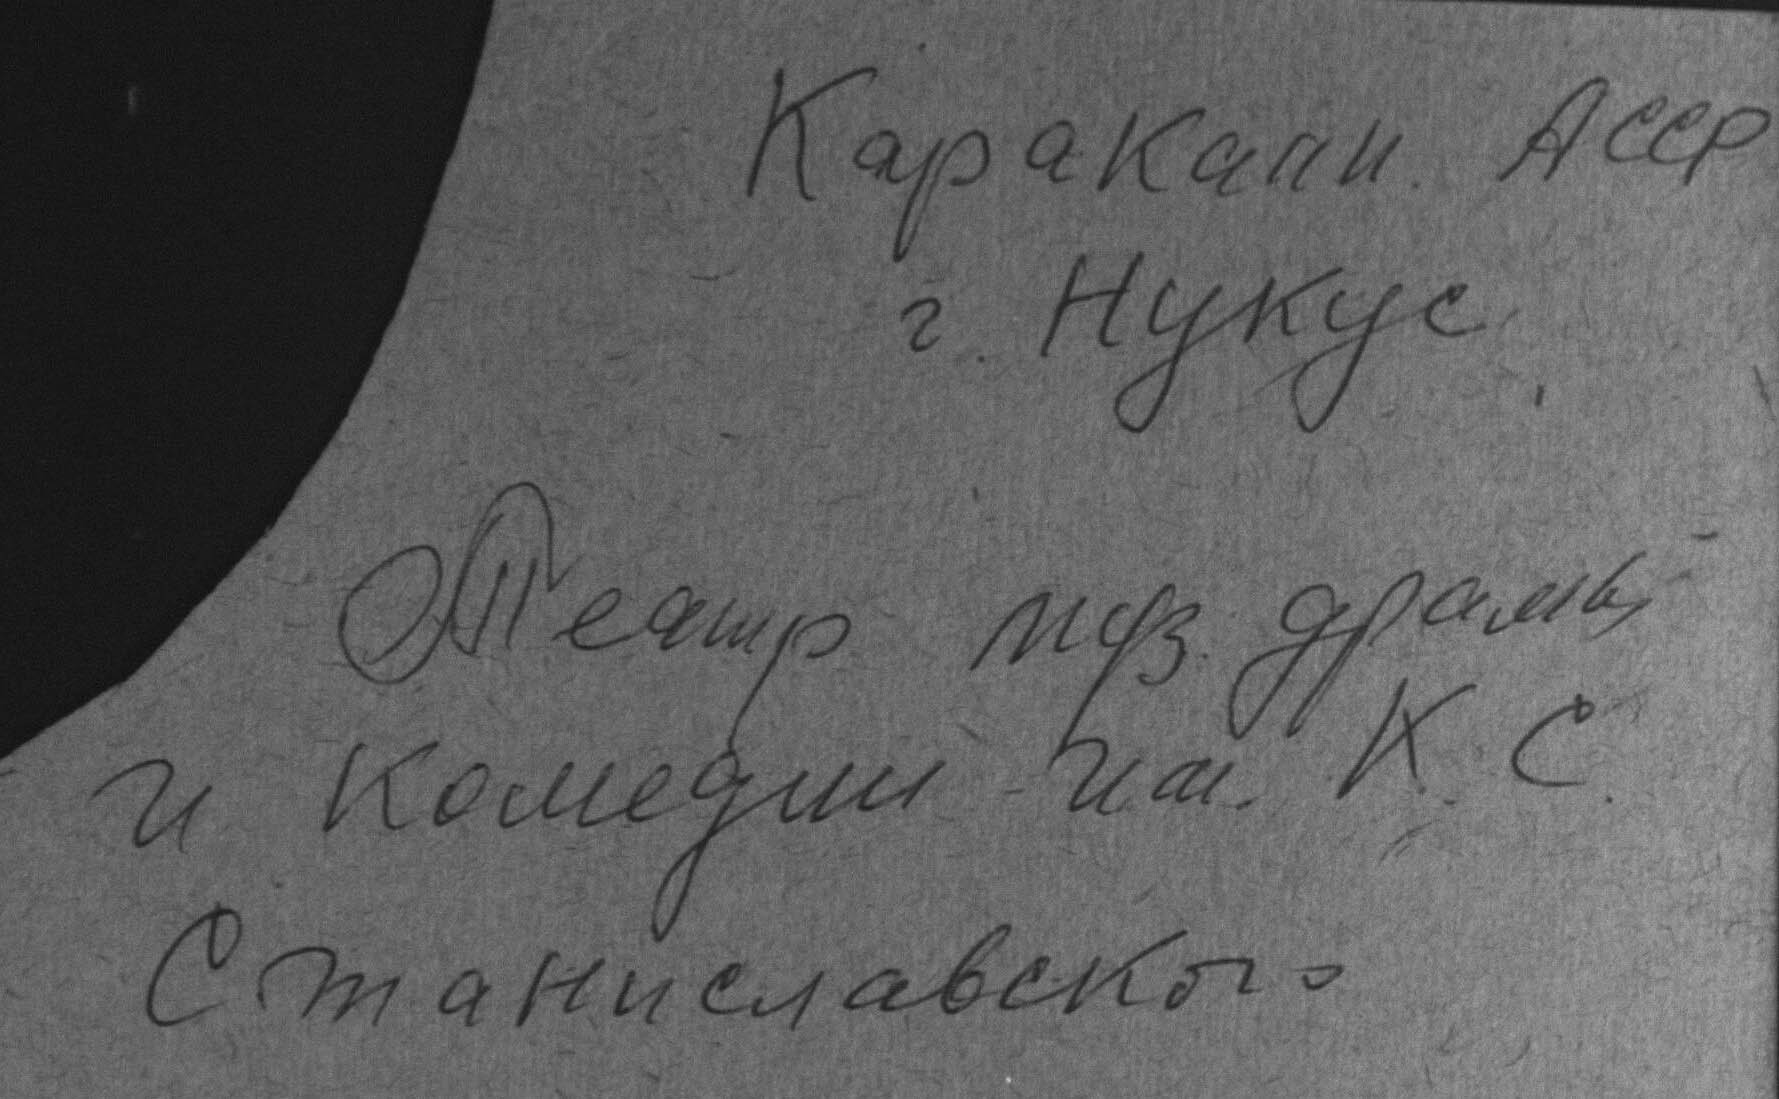 Каракалп. АССР
г. Нукус
Театр муз. драмы
и комедии им. К. С.
Станиславского